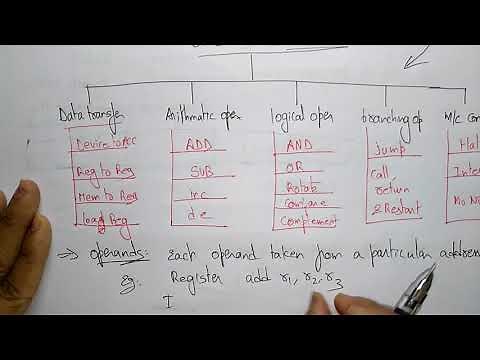 Data transfer Arithmatic oper logical oper branching op M/c con
Device to Acc ADD AND jump Hal
Reg to Reg SUB OR call, Inter
Mem to Reg inc Rotate return No
load Reg de Compare & Restart
Complement
→ operands:- Each operand taken from a particular address
eg. Register add r1, r2, r3
I